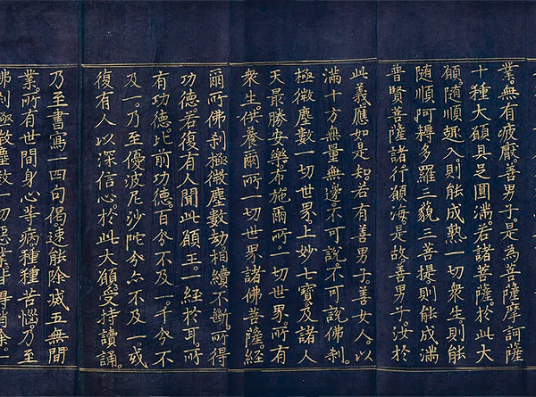 業。無有疲厭。善男子。是為菩薩摩訶薩
十種大願具足圓滿若諸菩薩於此大
願。隨順趣入。則能成熟一切衆生。則能
隨順阿耨多羅三藐三菩提。則能成滿
普賢菩薩諸行願海。是故善男子。汝於
此義。應如是知。若有善男子。善女人。以
滿十方無量無邊不可說不可說佛刹。
極微塵數一切世界。上妙七寶。及諸人
天最勝安樂。布施爾所一切世界。所有
衆生。供養爾所一切世界。諸佛菩薩。經
爾所佛刹極微塵數劫。相續不斷。所得
功德。若復有人聞此願王。一經於耳。所
有功德。比前功德。百分不及一。千分不
及一。乃至優波尼沙陀分亦不及一。或
復有人。以深信心。於此大願。受持讀誦。
乃至書寫一四句偈。速能除滅五無間
業。所有世間身心等病。種種苦惱。乃至
佛刹極微塵數一切惡業。皆得消除一